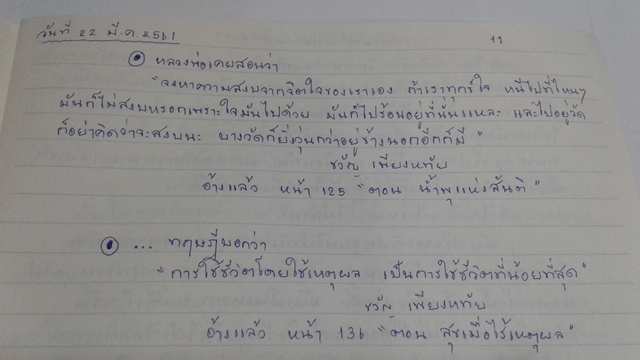 วันที่ 22 มี.ค. 2561
11
หลวงพ่อเคยสอนว่า
"จงหาความสงบจากจิตใจของเราเอง ถ้าเราทุกข์ใจ หนีไปที่ไหนๆ
มันก็ไม่สงบหรอกเพราะใจมันไปด้วย มันก็ไปร้อนอยู่ที่นั่นแหละ และไปอยู่วัด
ก็อย่าคิดว่าจะสงบนะ บางวัดก็ยิ่งวุ่นกว่าอยู่ข้างนอกอีกก็มี"
ขวัญ เพียงหทัย
อ้างแล้ว หน้า 125 "ตอน น้ำพุแห่งสันติ"
... ทฤษฎีบอกว่า
"การใช้ชีวิตโดยใช้เหตุผล เป็นการใช้ชีวิตที่น้อยที่สุด"
ขวัญ เพียงหทัย
อ้างแล้ว หน้า 136 "ตอน สุขเมื่อไร้เหตุผล"